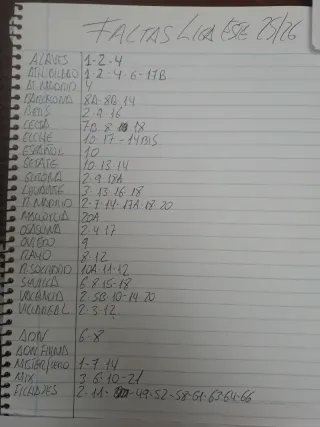 FALTAS LIGA ESTE 25/26
ALAVES 1-2-4
ATH. BILBAO 1-2-4-6-17B
AT. MADRID 4
BARCELONA 8A-8B-14
BETIS 2-9-16
CELTA 7B-8-18
ELCHE 10-17-14BIS
ESPAÑOL 10
GETAFE 10-13-14
GIRONA 2-9-18A
LEVANTE 3-13-16-18
R. MADRID 2-7-14-17A-18-20
MALLORCA 20A
OSASUNA 2-4-17
OVIEDO 9
RAYO 8-12
R. SOCIEDAD 10A-11-12
SEVILLA 6-8-15-18
VALENCIA 2-5B-10-14-20
VILLARREAL 2-3-12
6-8
1-7-14
MIX 3-6-10-21
FICHAJES 2-11-49-52-58-61-63-64-66